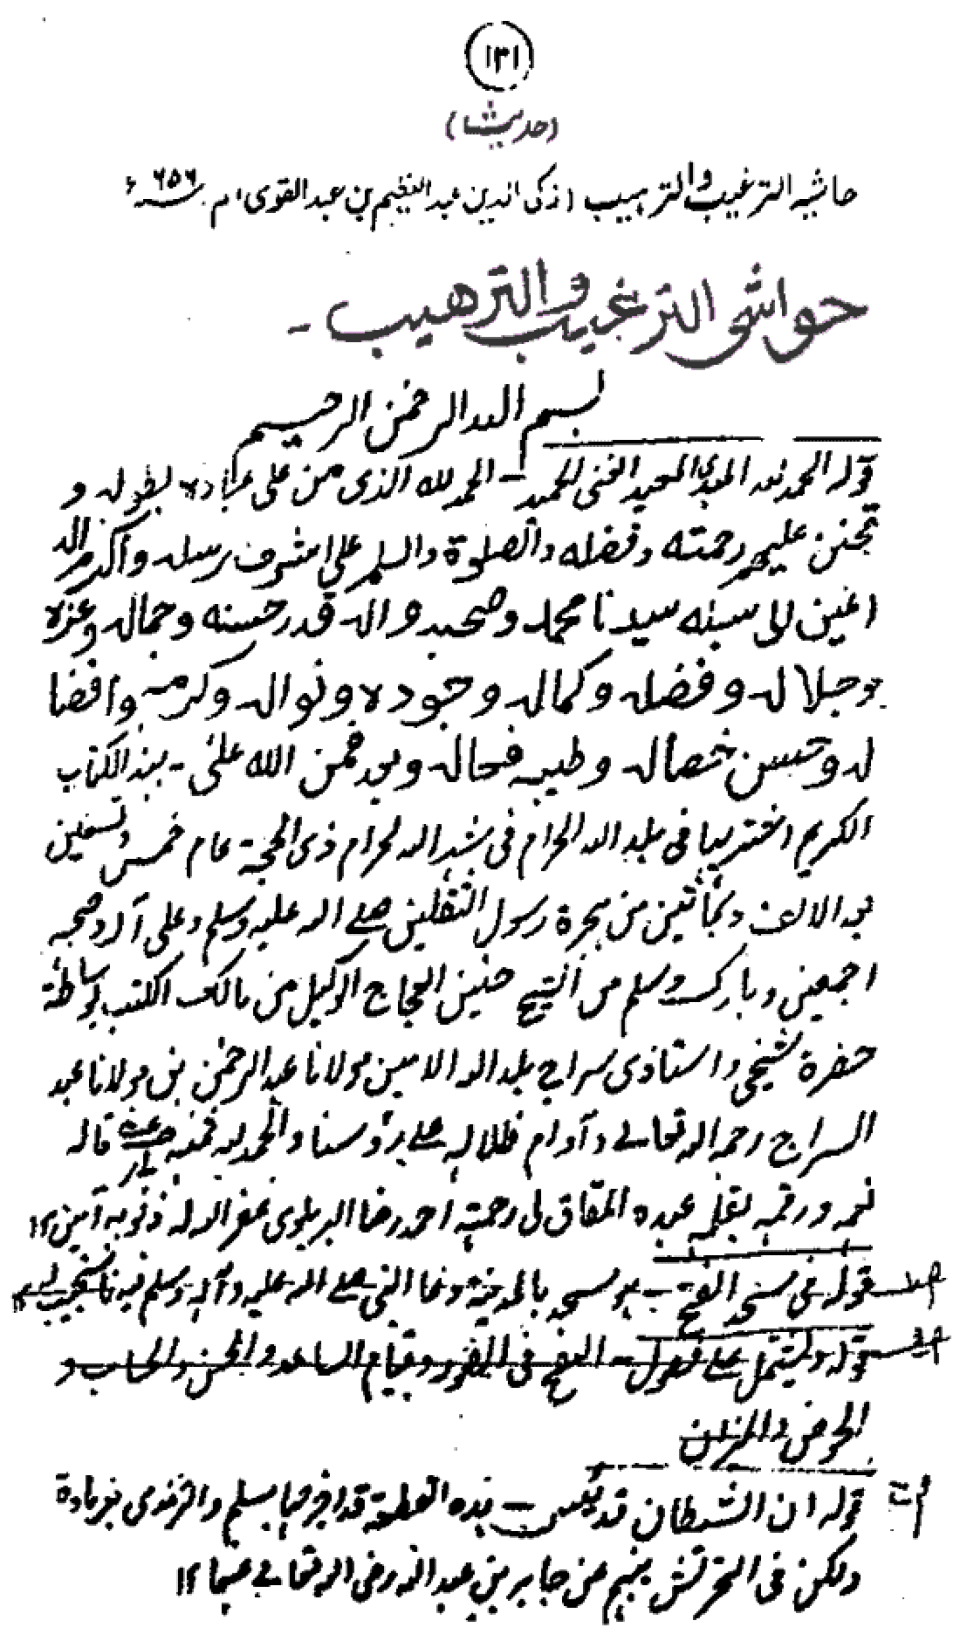 ۱۳۱
(حدیث)
حاشیہ الترغیب والترہیب (زکی الدین عبد العظیم بن عبد القوی) م ۶۵۶ ء
حواشی الترغیب والترهیب -
بسم الله الرحمن الرحیم
قوله الحمد لله المبدئ المعید الغنی الحمید - الحمد لله الذی من علی عباده بطوله و
تحنن علیهم رحمته وفضله والصلوة والسلم علی اشرف رسله واکرم
سیدنا محمد وصحبه واله قدر حسنه وجماله وعزه
وجلاله وفضله وکماله وجوده ونواله وکرمه وافضا
له وحسن خصاله وطیب فعاله وبعد فمن الله علی - بهذا الکتاب
الکریم اشتریتها فی بلد الله الحرام فی شهر الله الحرام ذی الحجة عام خمس وتسعین
بعد الالف ومأتین من هجرة رسول الثقلین صلی الله علیه وسلم وعلی آله وصحبه
اجمعین وبارک وسلم من الشیخ حنین العجاج الوکیل من مالک الکتب بوساطة
حضرة شیخی واستاذی سراج بلد الله الامین مولانا عبد الرحمن بن مولانا عبد
السراج رحمه الله تعالی وادام ظلاله علی رؤسنا والحمد لله قاله
بفمه ورقمه بقلمه عبده المفاق لی رحمته احمد رضا البریلوی غفر الله له ذنوبه آمین ۱۲
قوله فی مسجد الفتح - هو مسجد بالمدینة دعا النبی صلی الله علیه وآله وسلم فیه فاستجیب له ۱۲
قوله ویشتمل علی فصول - النفخ فی الصور وقیام الساعة والحساب و
الحوض والمیزان
قوله ان الشیطان قد یئس - هذه القطعة قد اخرجها مسلم والترمذی بزیادة
ولکن فی التحریش بینهم عن جابر بن عبد الله رضی الله تعالی عنهما ۱۲